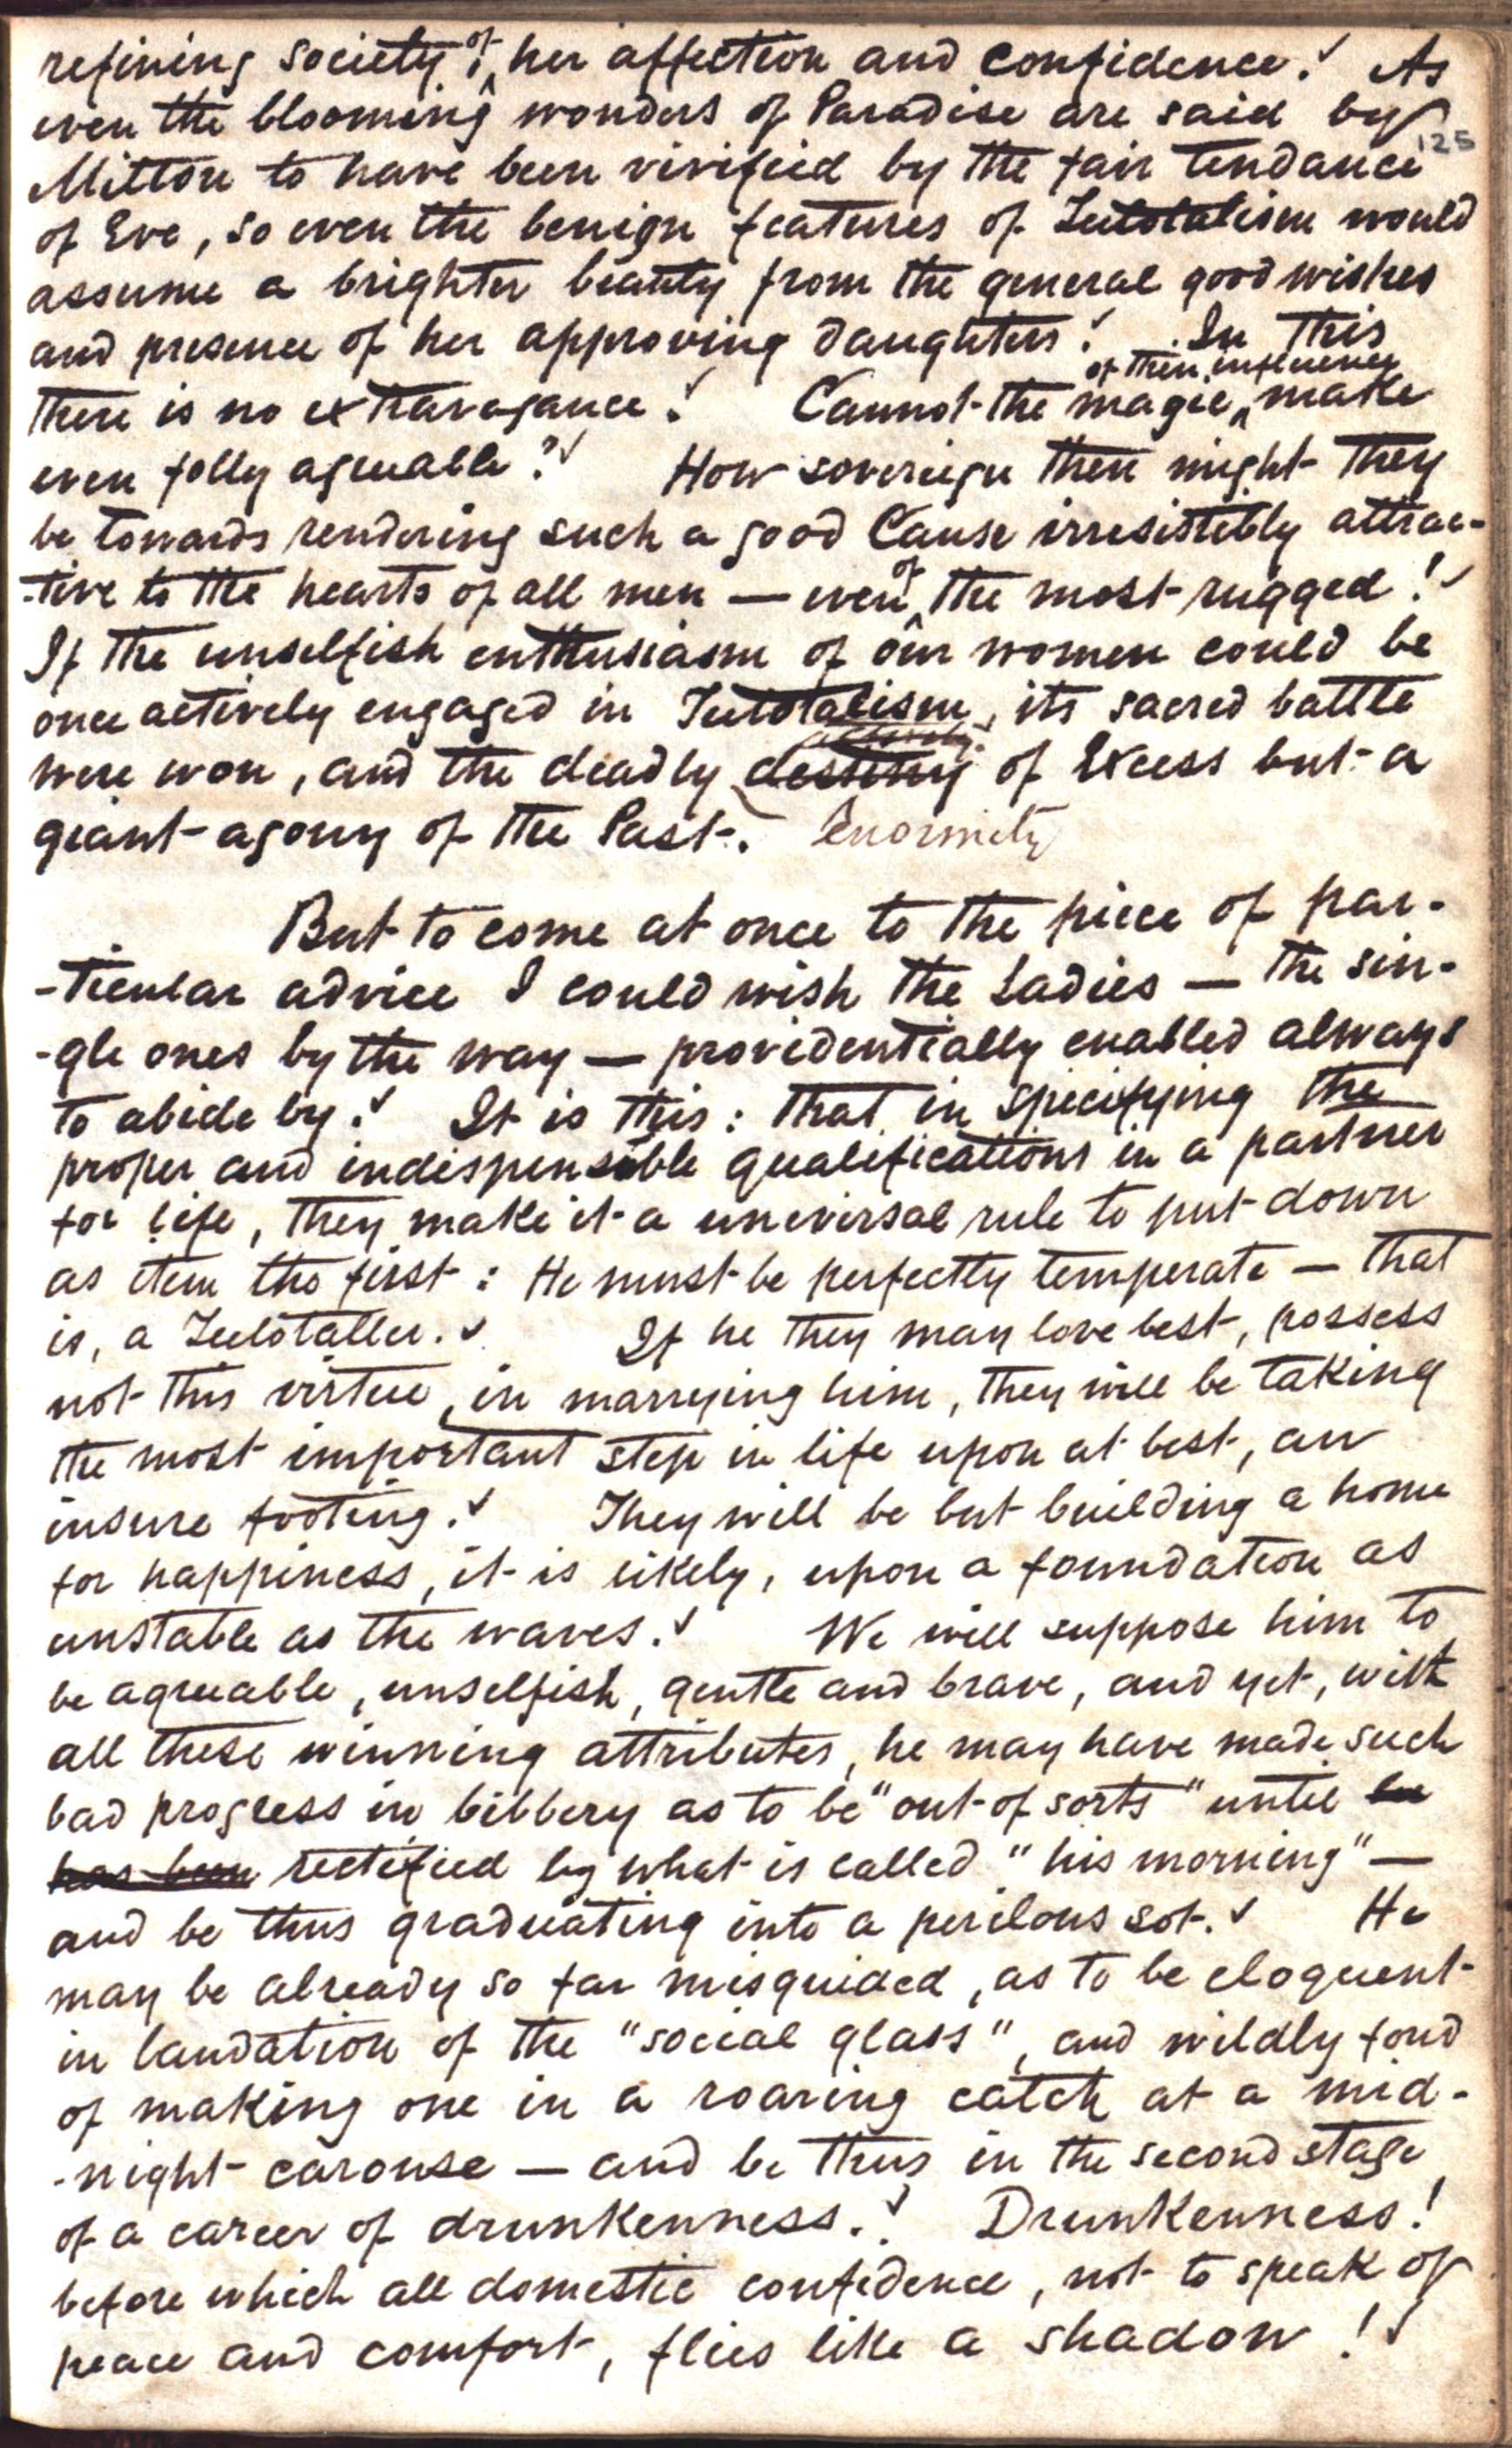 refining society of her affection and confidence! As
even the blooming wonders of Paradise are said by
125
Milton to have been vivified by the fair tendance
of Eve, so even the benign features of Teetotalism would
assume a brighter beauty from the general good wishes
and presence of her approving daughters! In this
there is no extravagance! Cannot the magic of their influence make
even folly agreeable? How sovereign then might they
be towards rendering such a good Cause irresistibly attrac-
-tive to the hearts of all men — even of the most rugged!
If the unselfish enthusiasm of our women could be
once actively engaged in Teetotalism, its sacred battle
were won, and the deadly destiny of Excess but a
giant-agony of the Past. Enormity
But to come at once to the piece of par-
-ticular advice I could wish the Ladies — the sin-
-gle ones by the way — providentially enabled always
to abide by. It is this: that in specifying the
proper and indispensible qualifications in a partner
for life, they make it a universal rule to put down
as item the first: He must be perfectly temperate — that
is, a Teetotaller. If he they may love best, possess
not this virtue, in marrying him, they will be taking
the most important step in life upon at best, an
insure footing. They will be but building a home
for happiness, it is likely, upon a foundation as
unstable as the waves. We will suppose him to
be agreeable, unselfish, gentle and brave, and yet, with
all these winning attributes, he may have made such
bad progress in bibbery as to be "out of sorts" until he
has been rectified by what is called "his morning" —
and be thus graduating into a perilous sot. He
may be already so far misguided, as to be eloquent
in laudation of the "social glass", and wildly fond
of making one in a roaring catch at a mid-
-night carouse — and be thus in the second stage
of a career of drunkenness. Drunkenness!
before which all domestic confidence, not to speak of
peace and comfort, flies like a shadow!